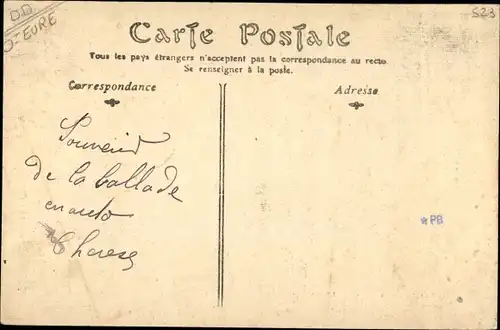 D-EURE
523
Carte Postale
Tous les pays étrangers n'acceptent pas la correspondance au recto.
Se renseigner à la poste.
Correspondance
Adresse
Souvenir
de la ballade
en auto
Therese
*PB